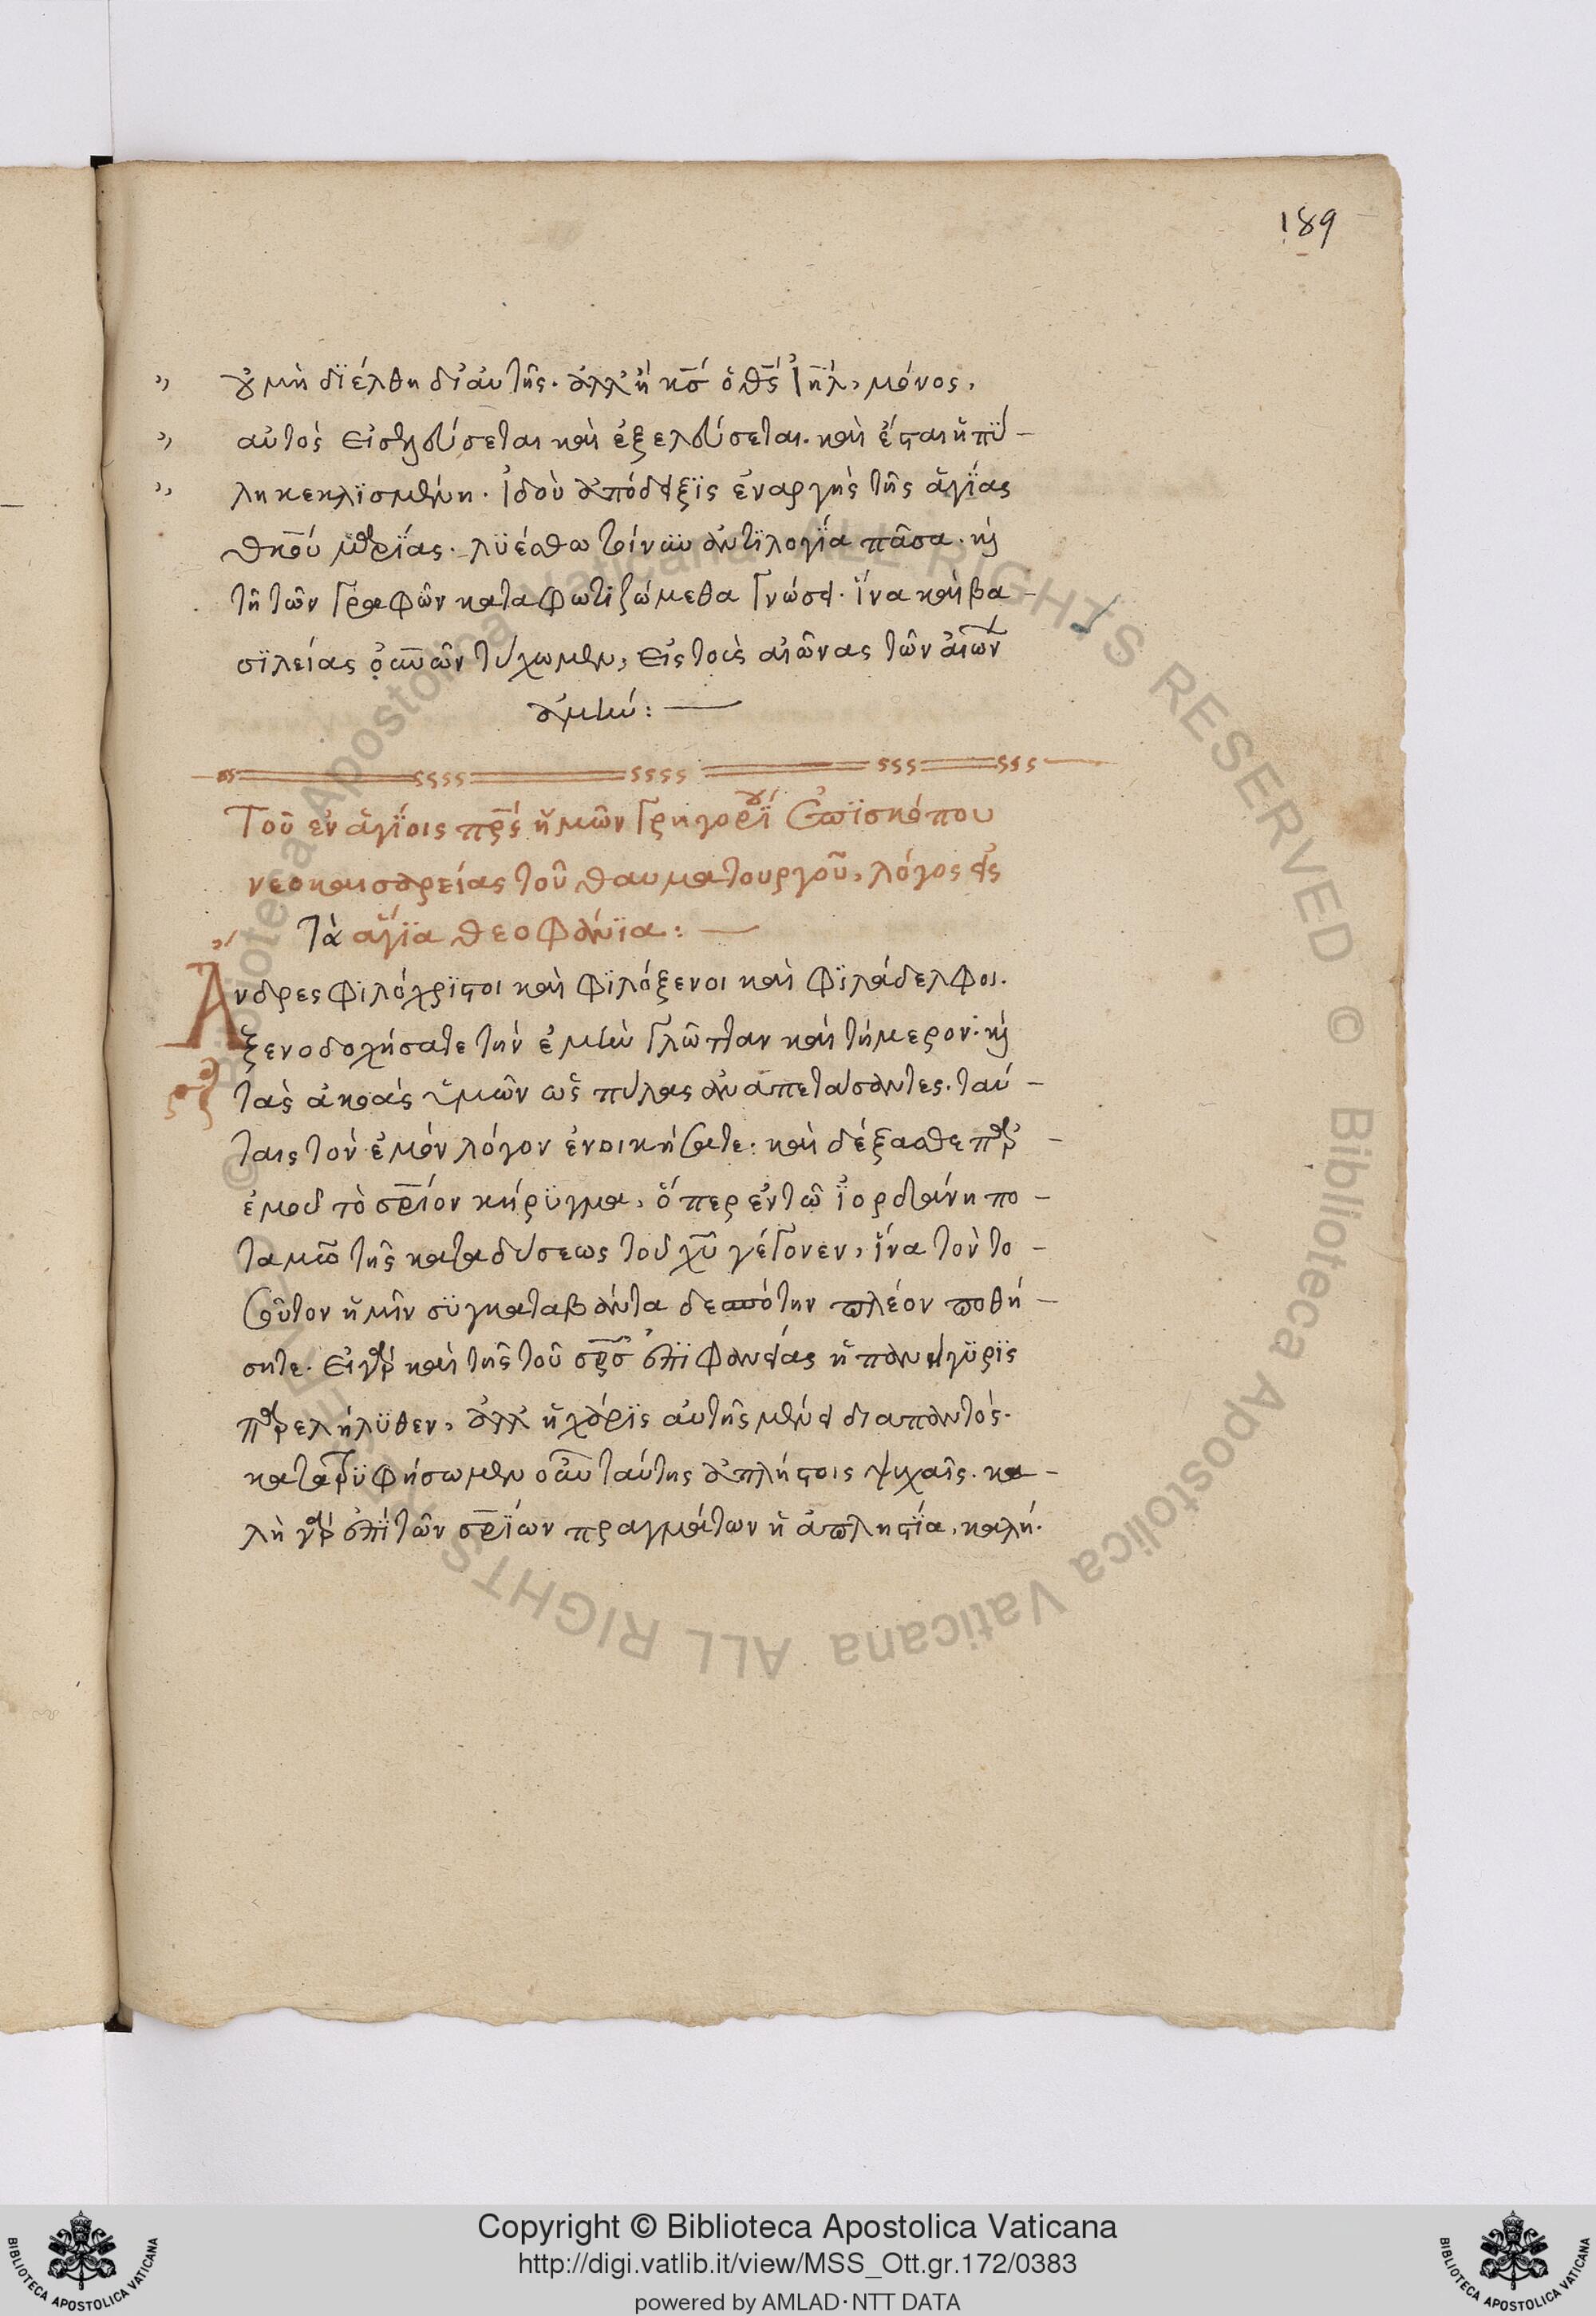 189
οὐ μὴ διέλθη δι' αὐτῆς. ἀλλ' ἢ κς ὁ θς ἰηλ, μόνος,
αὐτὸς εἰσελεύσεται καὶ ἐξελεύσεται. καὶ ἔσται ἡ πύ-
λη κεκλϊσμένη. ἰδοὺ ἀπόδειξϊς ἐναργὴς τῆς ἁγίας
θκου μαρίας. λυέσθω τοίνυν ἀντιλογία πᾶσα. κὶ
τῆ τῶν γραφῶν καταφωτιζώμεθα γνώσει. ἵνα καὶ βα-
σϊλείας ουνων τύχωμεν, εἰς τοὺς αἰῶνας τῶν αἰών
ἀμήν:
Τοῦ ἐν ἁγίοις πρς ἡμῶν Γρηγορίου Ἐπισκόπου
νεοκαισαρείας τοῦ θαυματουργοῦ, λόγος εἰς
τὰ ἅγϊα θεοφάνϊα:
Ἄνδρες φιλόχρϊστοι καὶ φϊλόξενοι καὶ φϊλάδελφοι.
ξενοδοχήσατε τὴν ἐμὴν γλῶτταν καὶ τήμερον. κὶ
τὰς ἀκοὰς ὑμῶν ὡς πύλας ἀναπετάσαντες. ταύ-
ταις τὸν ἐμὸν λόγον ἐνοικήσατε. καὶ δέξασθε παρ'
ἐμοῦ τὸ σρίον κήρϋγμα, ὅπερ ἐν τῶ ἰορδάνη πο-
ταμῶ τῆς καταδύσεως τοῦ χυ γέγονεν, ἵνα τὸν το-
σοῦτον ἡμῖν συγκαταβάντα δεσπότην πλέον ποθή-
σητε. εἰ γὰρ καὶ τῆς τοῦ σρς ἐπιφανείας ἡ πανήγϋρϊς
παρελήλϋθεν, ἀλλ' ἡ χάρϊς αὐτῆς μένει διαπαντός.
κατατρϋφήσωμεν οὖν ταύτης ἀπλήστοις ψυχαῖς. κα-
λὴ γὰρ ἐπὶ τῶν σρίων πραγμάτων ἡ ἀπληστία, καλή.
Copyright © Biblioteca Apostolica Vaticana
http://digi.vatlib.it/view/MSS_Ott.gr.172/0383
powered by AMLAD·NTT DATA
BIBLIOTECA APOSTOLICA VATICANA
BIBLIOTECA APOSTOLICA VATICANA
© Biblioteca Apostolica Vaticana ALL RIGHTS RESERVED © Biblioteca Apostolica Vaticana ALL RIGHTS RESERVED